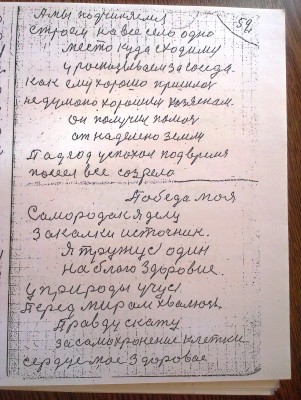 52.
А мы подчиняемся
строем на все село одно
место куда сходиму
у расспашиваем за соседа.
Как ему хорошо пришлось
не думано хорошим хозяенам.
Он получил помощ
от наделено земли
Подход успохал под время
посеел все созрело
Победа моя
Самородок я делу
закалки источник.
Я тружусь один
на благо здоровие
у природы учусь
Перед миром хвалюсь.
Правду скажу
за самохронение клетки
сердце мое здоровое